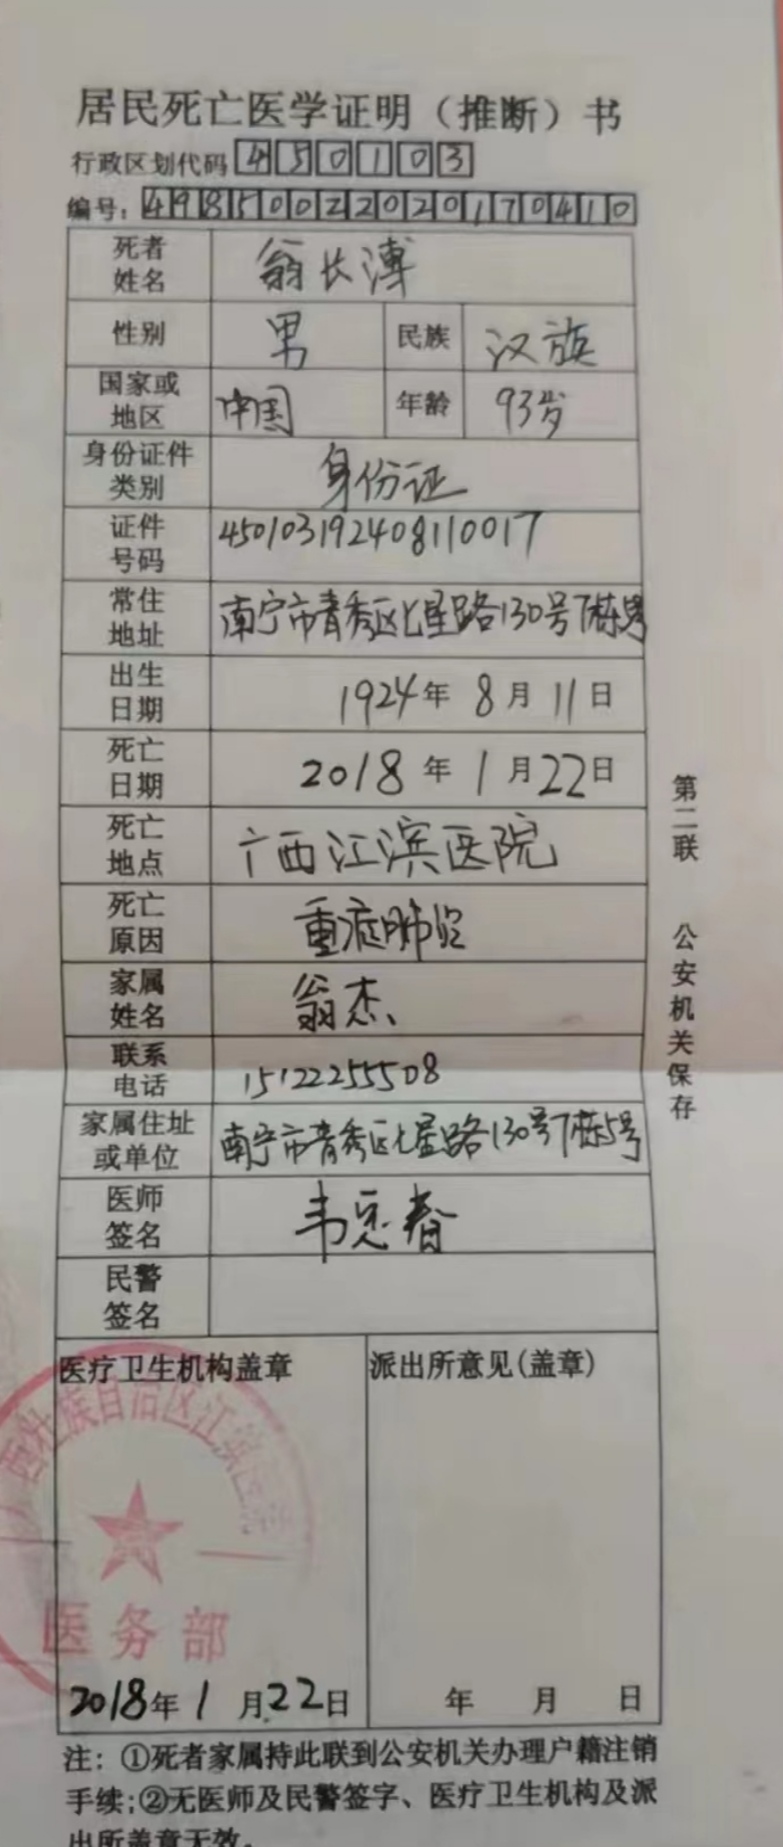 居民死亡医学证明（推断）书
行政区划代码 450103
编号：49850022020170410
死者姓名 翁长溥
性别 男 民族 汉族
国家或地区 中国 年龄 93岁
身份证件类别 身份证
证件号码 450103192408110017
常住地址 南宁市青秀区七星路130号7栋
出生日期 1924年8月11日
死亡日期 2018年1月22日
死亡地点 广西江滨医院
死亡原因 重症肺炎
家属姓名 翁杰
联系电话 15122255508
家属住址或单位 南宁市青秀区七星路130号7栋5号
医师签名 韦 春
民警签名
医疗卫生机构盖章 派出所意见(盖章)
西壮族自治区江滨医院
医务部
2018年1月22日 年 月 日
注：①死者家属持此联到公安机关办理户籍注销
手续;②无医师及民警签字、医疗卫生机构及派
出所盖章无效。
第二联 公安机关保存